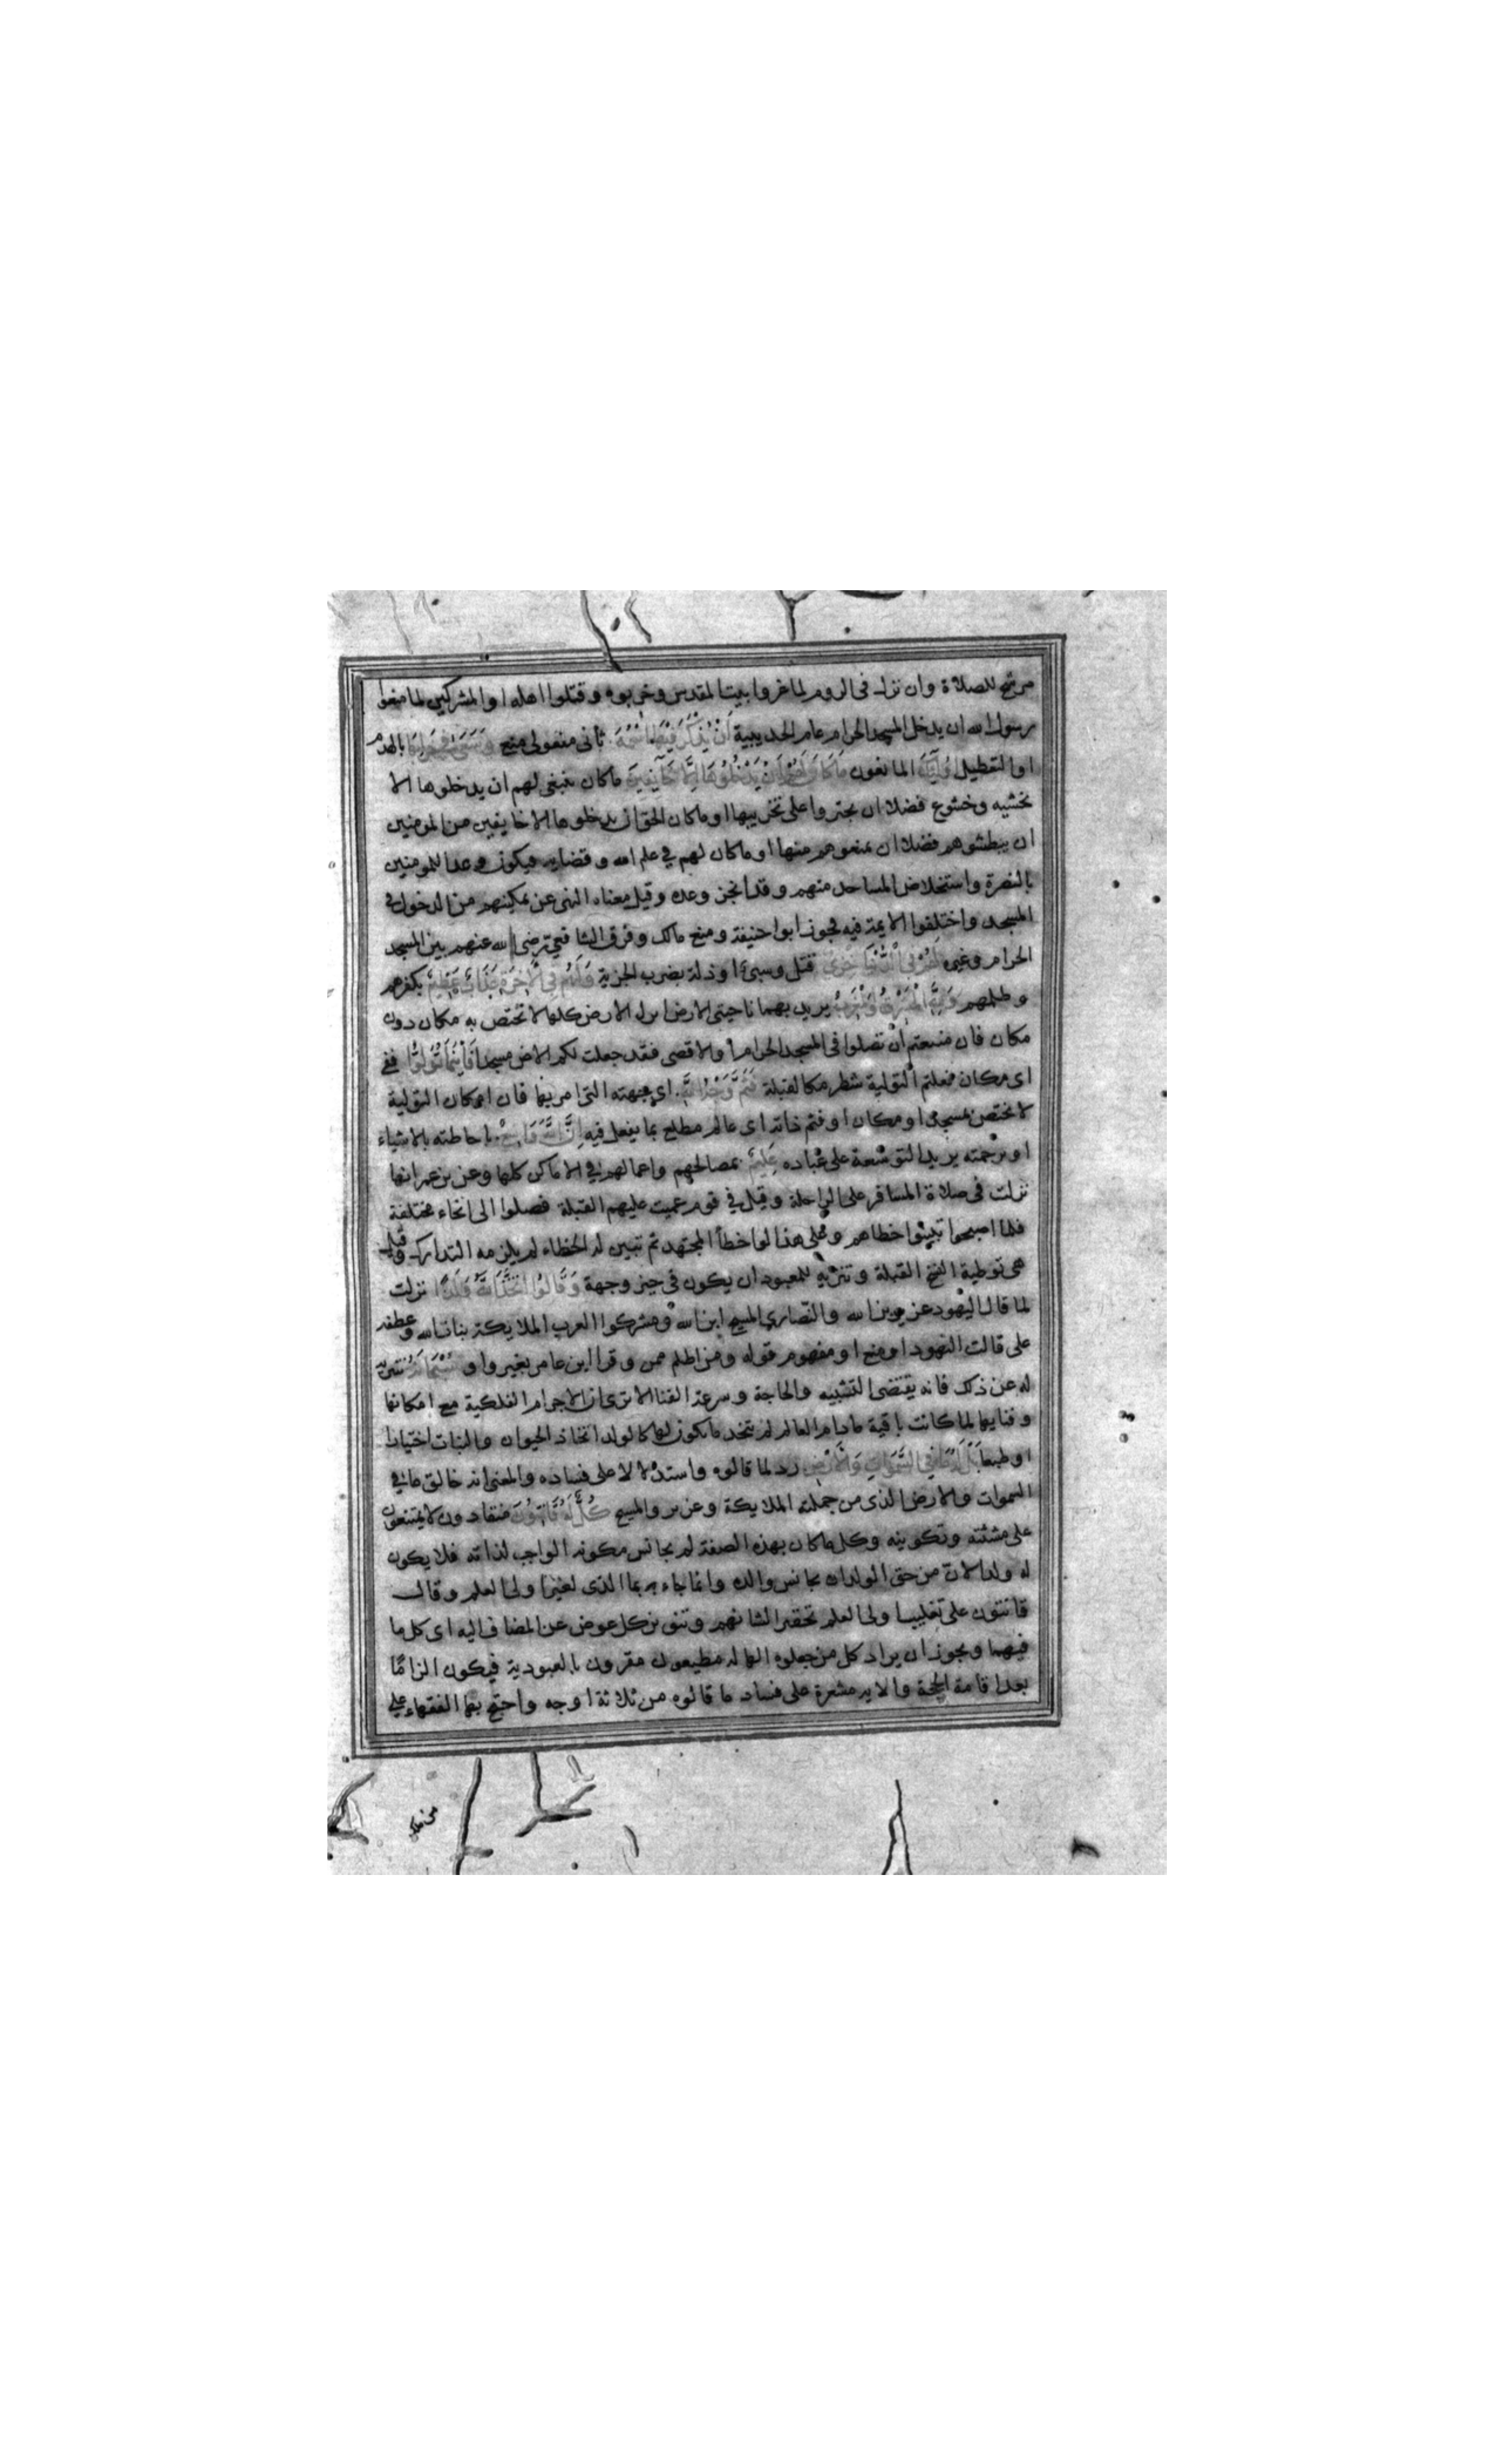 مرشح للصلاة وان نزل فى الروم لما غزوا بيت المقدس وخربوه وقتلوا اهله او المشركين لما منعوا
رسول الله ان يدخل المسجد الحرام عام الحديبية اَنْ يُذْكَرَ فِيْهَا اسْمُهُ ثانى مفعولى منع وَسَعَى فِي خَرَابِهَا بالهدم
او التعطيل اُولَئِكَ المانعون مَا كَانَ لَهُمْ اَنْ يَدْخُلُوهَا اِلَّا خَآئِفِينَ ماكان ينبغى لهم ان يدخلوها الا
بخشيه وخشوع فضلا ان يجتروا على تخريبها او ماكان الحق ان يدخلوها الا خايفين من المومنين
ان يبطشوهم فضلا ان يمنعوهم منها او ماكان لهم فى علم الله وقضايه فيكون وعدا للمومنين
بالنصرة واستخلاص المساجد منهم وقد انجز وعده وقيل معناه النهى عن تمكينهم من الدخول فى
المسجد واختلفوا الايمة فيه فجوز ابوا حنيفة ومنع مالك وفرق الشافعي رضى الله عنهم بين المسجد
الحرام وغيره لَهُمْ فِي الدُّنْيَا خِزْىٌ قتل وسبى او ذلة بضرب الجزية وَلَهُمْ فِي الْاٰخِرَةِ عَذَابٌ عَظِيمٌ بكفرهم
وظلمهم وَلِلَّهِ الْمَشْرِقُ وَالْمَغْرِبُ يريد بهما ناحيتى الارض اى له الارض كلها لا تختص به مكان دون
مكان فان منعتم اَنْ تصلوا فى المسجد الحرام او الاقصى فقد جعلت لكم الارض مسجدا فَاَيْنَمَا تُوَلُّوا ففى
اى مكان فعلتم التولية شطر مكا لقبلة فَثَمَّ وَجْهُ اللَّهِ اى جهته التى امر بها فان امكان التولية
لا يختص بمسجد او مكان او فثم ذاته اى عالم مطلع بما يفعل فيه اِنَّ اللَّهَ وَاسِعٌ باحاطته بالاشياء
او برحمته يريد التوسعة على عباده عَلِيمٌ بمصالحهم واعمالهم فى الاماكن كلها وعن بن عمر انها
نزلت فى صلاة المسافر على الراحلة وقيل فى قوم عميت عليهم القبلة فصلوا الى انحاء مختلفة
فلما اصبحوا تبينوا خطاهم وعلى هذا لو اخطأ المجتهد ثم تبين له الخطاء لم يلزمه التدارك وقيل
هى توطية لنسخ القبلة وتنزيه للمعبود ان يكون فى حيز وجهة وَقَالُوا اتَّخَذَ اللَّهُ وَلَدًا نزلت
لما قال اليهود عزير بن الله والنصارى المسيح ابن الله ومشركوا العرب الملايكة بنات الله وعطفه
على قالت اليهود او منع او مفهوم قوله ومن اظلم ممن وقرا ابن عامر بغير واو سُبْحَانَهُ تنزيه
له عن ذلك فانه يقتضى التشبيه والحاجة وسرعة الفنا الا ترى ان الاجرام الفلكية مع امكانها
وفنايها لما كانت باقية مادام العالم لم يتخد ما يكون لها كالولد اتخاذ الحيوان والنبات اختيارا
او طبعا بَلْ لَهُ مَا فِي السَّمَوَاتِ وَالْاَرْضِ رد لما قالوه واستدلالا على فساده والمعنى انه خالق ما فى
السموات والارض الذى من جملته الملايكة وعزير والمسيح كُلٌّ لَهُ قَانِتُونَ منقادون لا يمتنعون
على مشئته وتكوينه وكل ما كان بهذه الصفة لم يجانس مكونه الواجب لذاته فلا يكون
له ولد لان من حق الولد ان يجانس والده وانما جاء بما الذى لغير اولى العلم وقال
قانتون على تغليب اولى العلم تحقيرا لشانهم وتنوين كل عوض عن المضاف اليه اى كل ما
فيهما ويجوز ان يراد كل من جعلوه الها له مطيعون مقرون بالعبودية فيكون الزامًا
بعد اقامة الحجة والايه مشعرة على فساد ما قالوه من ثلاثة اوجه واحتج بها الفقهاء على